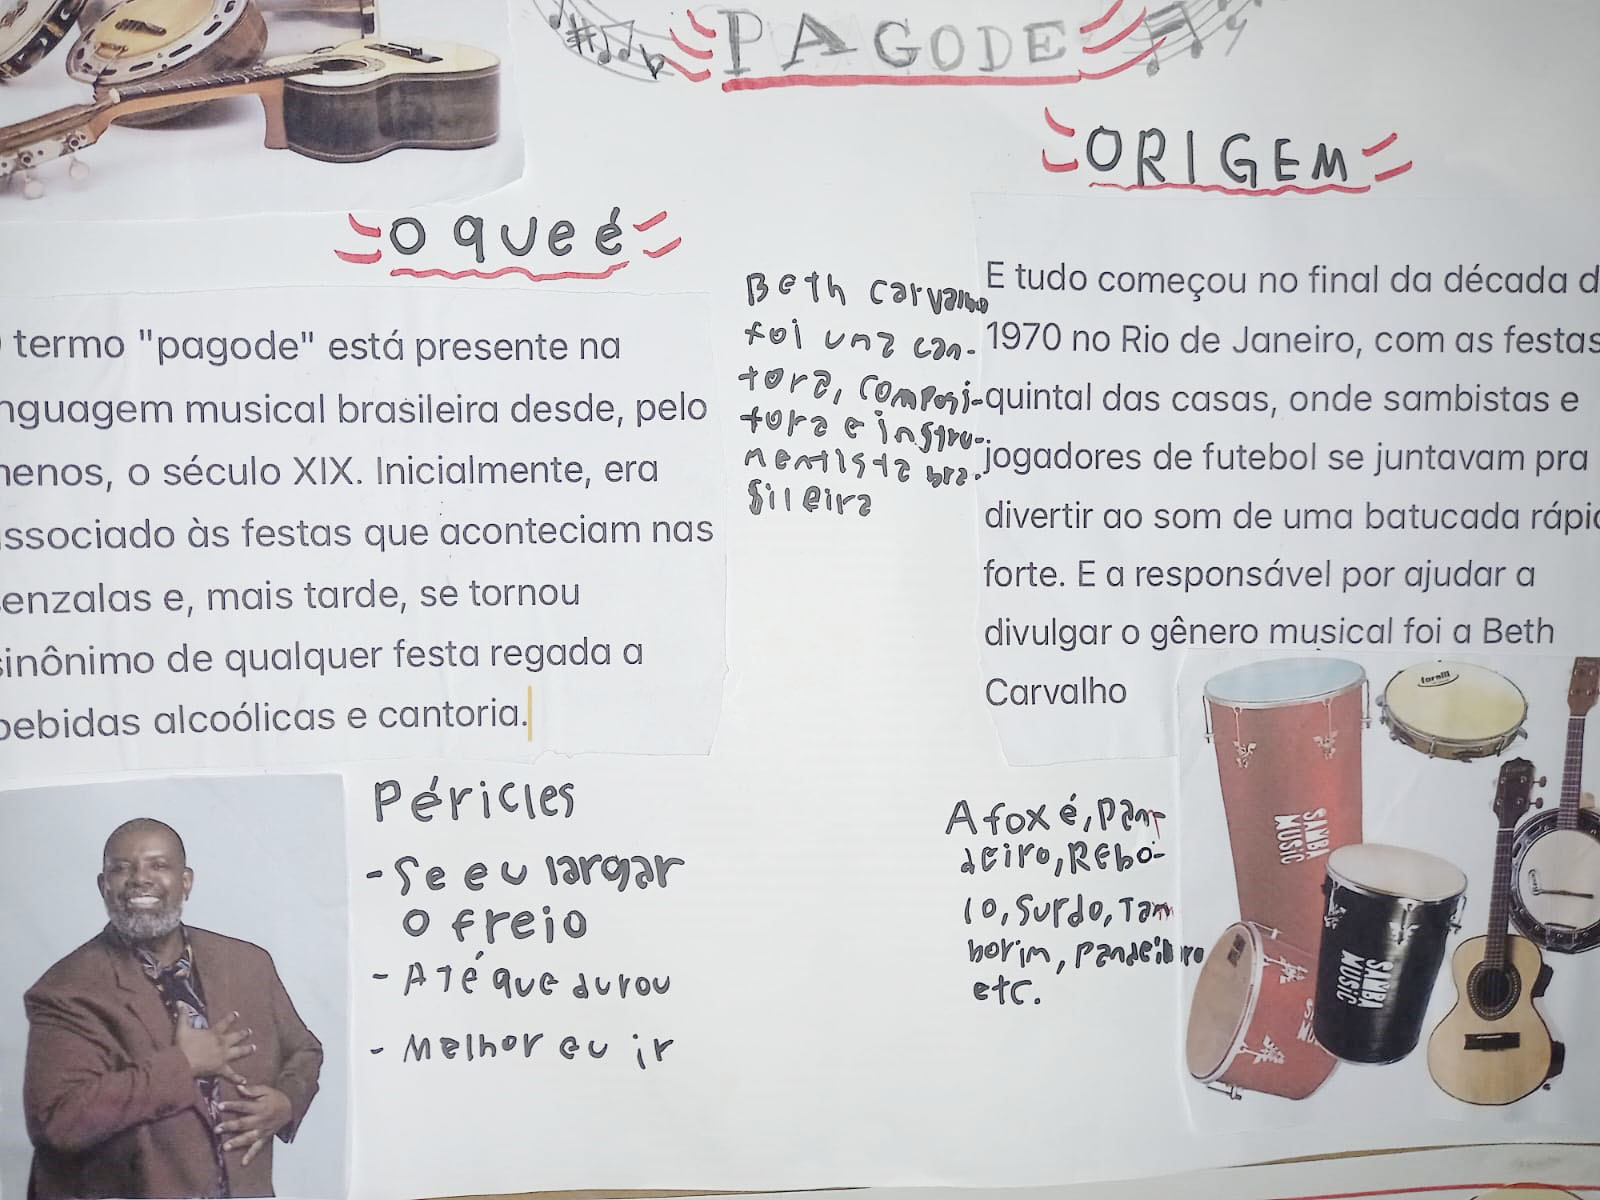 PAGODE
ORIGEM
O que é
termo "pagode" está presente na
nguagem musical brasileira desde, pelo
menos, o século XIX. Inicialmente, era
associado às festas que aconteciam nas
senzalas e, mais tarde, se tornou
sinônimo de qualquer festa regada a
bebidas alcoólicas e cantoria.
Beth Carvalho
foi uma can-
tora, composi-
tora e instru-
mentista bra-
sileira
E tudo começou no final da década d
1970 no Rio de Janeiro, com as festas
quintal das casas, onde sambistas e
jogadores de futebol se juntavam pra
divertir ao som de uma batucada rápid
forte. E a responsável por ajudar a
divulgar o gênero musical foi a Beth
Carvalho
Péricles
- Se eu largar
o freio
- Até que durou
- Melhor eu ir
Afoxé, Pan-
deiro, Rebo-
lo, Surdo, Tam
borim, Pandeiro
etc.
SAMBA
MUSIC
SAMBA
MUSIC